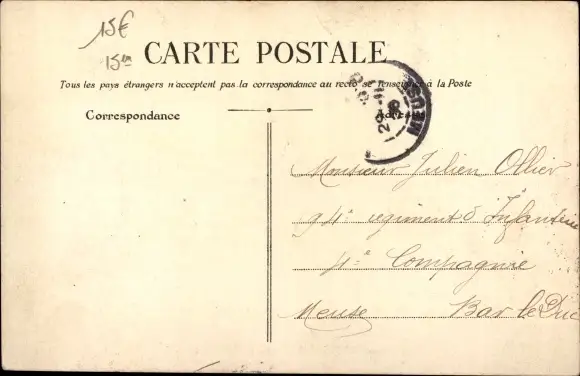 15€
15
CARTE POSTALE
Tous les pays étrangers n'acceptent pas la correspondance au recto se renseigner à la Poste
Correspondance
Adresse
Monsieur Julien Ollier
94e regiment d'Infanterie
4e Compagnie
Meuse Bar le Duc